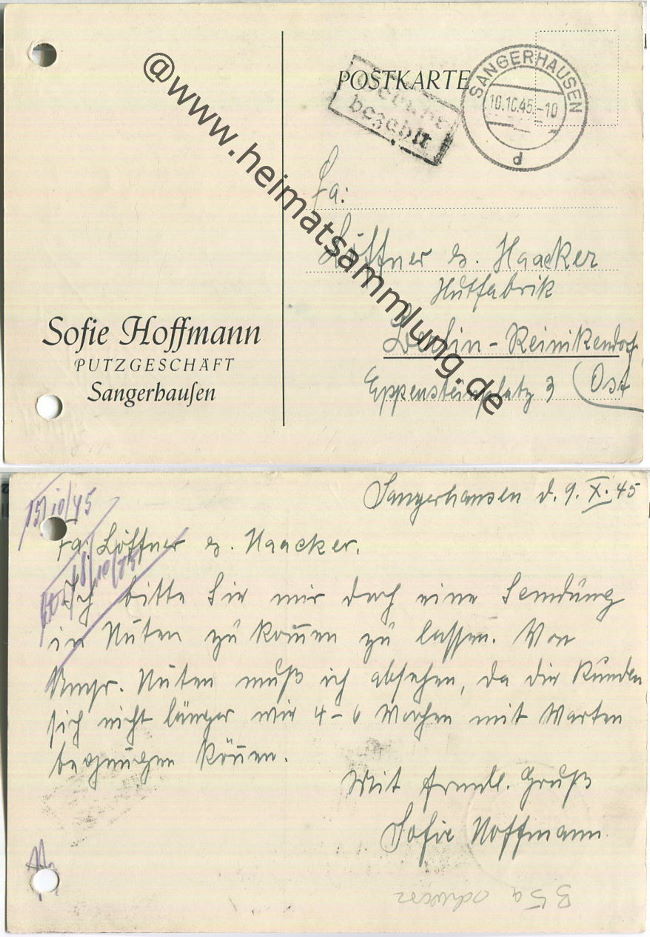 POSTKARTE
Gebühr
bezahlt
SANGERHAUSEN
10.10.45.-10
d
@www.heimatsammlung.de
Fa:
Löffner & Haacker
Hutfabrik
Berlin - Reinikendorf
Eppensteinplatz 3 (Ost
Sofie Hoffmann
PUTZGESCHÄFT
Sangerhauſen
15/10/45
Sangerhausen d. 9. X. 45
Fa. Löffner & Haacker.
Ich bitte Sie mir doch eine Sendung
in Hüten zukommen zu lassen. Von
Umpr. Hüten muß ich absehen, da die Kunden
sich nicht länger wie 4-6 Wochen mit Warten
begnügen können.
Mit frndl. Gruß
Sofie Hoffmann.
B 5a schwarz